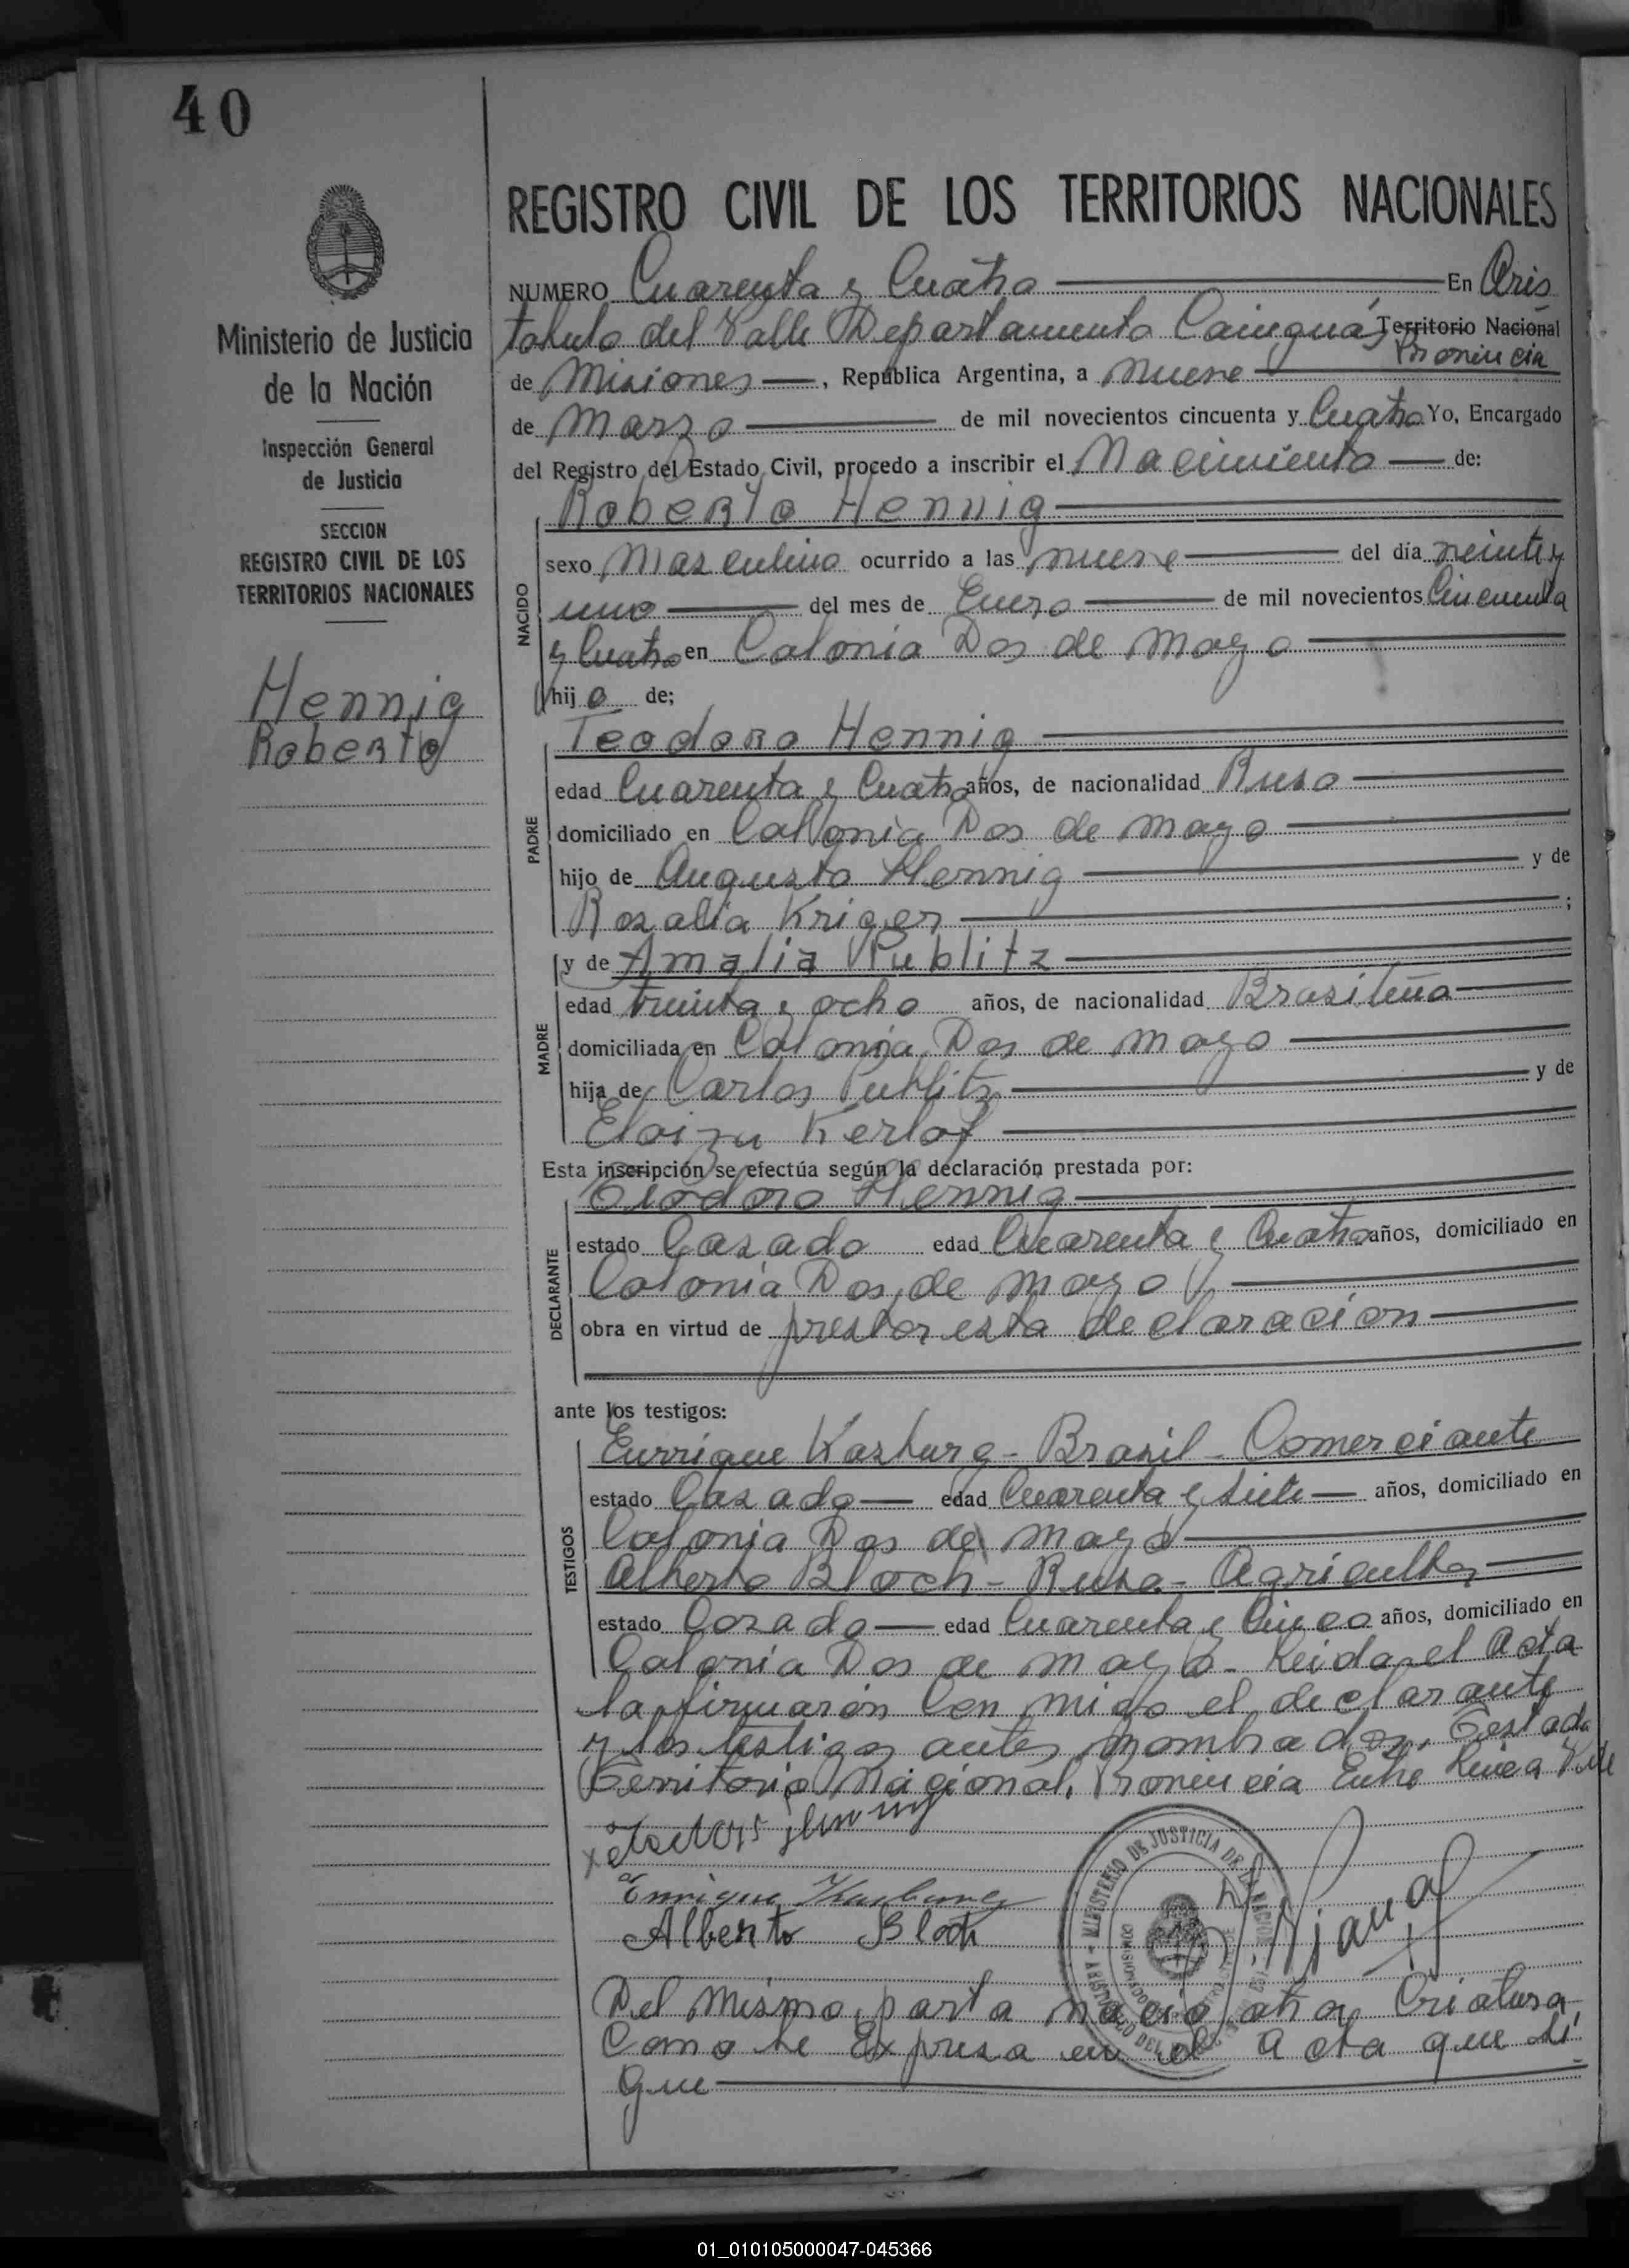 40
REGISTRO CIVIL DE LOS TERRITORIOS NACIONALES
NUMERO Cuarenta y Cuatro En Aris
tobulo del Valle Departamento Cainguás Territorio Nacional
Provincia
de Misiones, República Argentina, a nueve
de Marzo de mil novecientos cincuenta y Cuatro Yo, Encargado
del Registro del Estado Civil, procedo a inscribir el Nacimiento de:
Roberto Hennig
NACIDO
sexo Masculino ocurrido a las nueve del día veinte y
uno del mes de Enero de mil novecientos Cincuenta
y Cuatro en Colonia Dos de Mayo
hijo de;
PADRE
Teodoro Hennig
edad Cuarenta y Cuatro años, de nacionalidad Ruso
domiciliado en Colonia Dos de Mayo
hijo de Augusto Hennig y de
Rosalia Kriger ;
MADRE
y de Amalia Publitz
edad treinta y ocho años, de nacionalidad Brasileña
domiciliada en Colonia Dos de Mayo
hija de Carlos Publitz y de
Kerlof
Esta inscripción se efectúa según la declaración prestada por:
DECLARANTE
Teodoro Hennig
estado Casado edad Cuarenta y Cuatro años, domiciliado en
Colonia Dos de Mayo
obra en virtud de prestar esta declaracion
ante los testigos:
TESTIGOS
Enrrique Kasburg - Brasil - Comerciante
estado Casado edad Cuarenta y siete años, domiciliado en
Colonia Dos de Mayo
Alberto Bloch - Ruso - Agricultor
estado Casado edad Cuarenta y Cinco años, domiciliado en
Colonia Dos de Mayo - Leida el Acta
la firmarón Con migo el declarante
y los testigos antes nombrados. Testado
Territorio Nacional. Provincia Entre Linea Vale
Enrique
Alberto Bloch
MINISTERIO DE JUSTICIA DE LA NACION
Del mismo parto nacio otra Criatura
Como se Expresa en el acta que si
gue
Ministerio de Justicia
de la Nación
Inspección General
de Justicia
SECCION
REGISTRO CIVIL DE LOS
TERRITORIOS NACIONALES
Hennig
Roberto
01_010105000047-045366